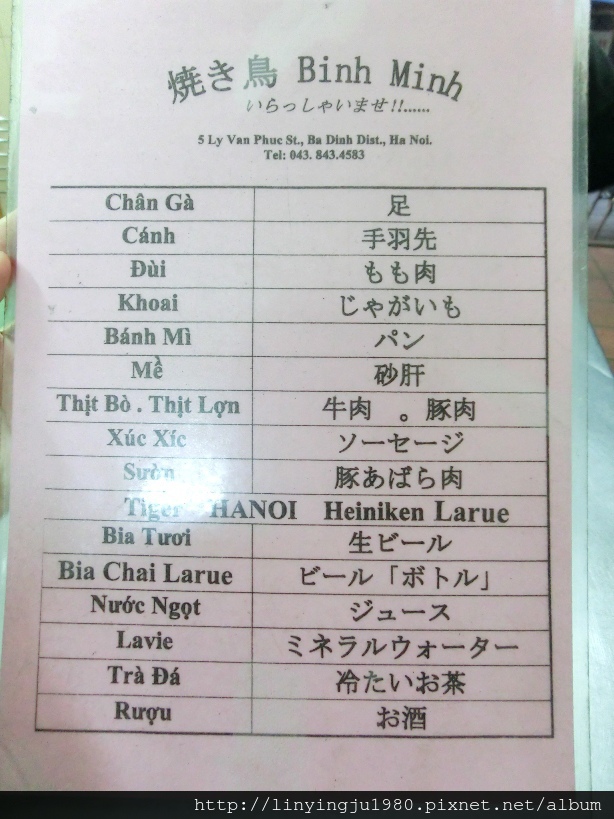 焼き鳥 Binh Minh
いらっしゃいませ!!......
5 Ly Van Phuc St., Ba Dinh Dist., Ha Noi.
Tel: 043. 843.4583
Chân Gà 足
Cánh 手羽先
Đùi もも肉
Khoai じゃがいも
Bánh Mì パン
Mề 砂肝
Thịt Bò . Thịt Lợn 牛肉 。豚肉
Xúc Xíc ソーセージ
Sườn 豚あばら肉
Tiger HANOI Heiniken Larue
Bia Tươi 生ビール
Bia Chai Larue ビール「ボトル」
Nước Ngọt ジュース
Lavie ミネラルウォーター
Trà Đá 冷たいお茶
Rượu お酒
http://linyingju1980.pixnet.net/album